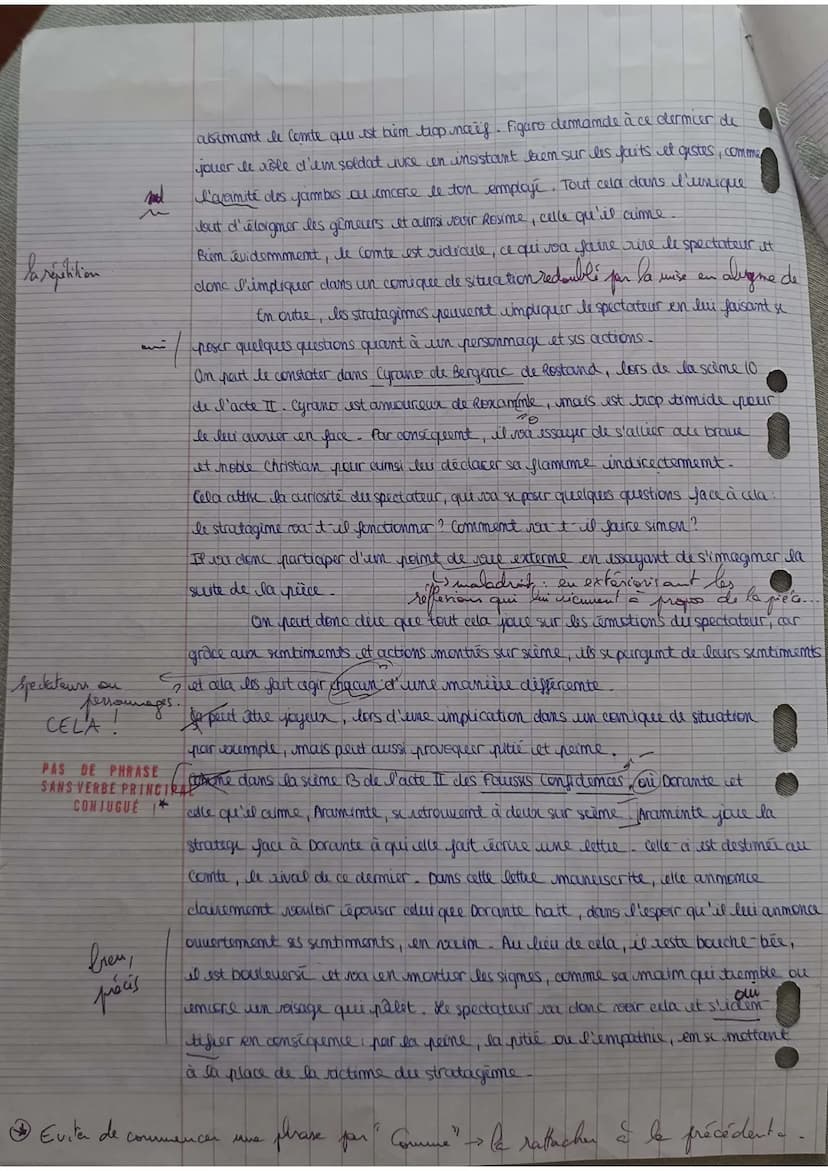 aisément le Comte qui est bien trop naïf. Figaro demande à ce dernier de
jouer le rôle d'un soldat ivre en insistant bien sur les faits et gestes, comme
l'avamité des jambes ou encore le ton employé. Tout cela dans l'unique
but d'éloigner les gêneurs et ainsi voir Rosine, celle qu'il aime.
Bien évidemment, le Comte est ridicule, ce qui va faire rire le spectateur et
donc l'impliquer dans un comique de situation redoublé par la mise en abyme de
la répétition
En outre, les stratagèmes peuvent impliquer le spectateur en lui faisant se
poser quelques questions quant à un personnage et ses actions.
On peut le constater dans Cyrano de Bergerac de Rostand, lors de la scène 10
de l'acte II. Cyrano est amoureux de Roxanne, mais est trop timide pour
le lui avouer en face. Par conséquent, il va essayer de s'allier au brave
et noble Christian pour ainsi lui déclarer sa flamme indirectement.
Cela attise la curiosité du spectateur, qui va se poser quelques questions face à cela :
le stratagème va-t-il fonctionner ? Comment va-t-il faire sinon ?
Il va donc participer d'un point de vue externe en essayant de s'imaginer la
suite de la pièce.
↳ maladroit : en extériorisant les
réflexions qui lui viennent à propos de la pièce...
On peut donc dire que tout cela joue sur les émotions du spectateur, car
grâce aux sentiments et actions montrés sur scène, ils se purgent de leurs sentiments
et cela les fait agir chacun d'une manière différente.
Spectateurs ou
personnages.
?
CELA !
peut être joyeux, lors d'une implication dans un comique de situation
par exemple, mais peut aussi provoquer pitié et peine.
PAS DE PHRASE
SANS VERBE PRINCIPAL
CONJUGUÉ ! *
Comme dans la scène 13 de l'acte II des Fausses Confidences, où Dorante et
celle qu'il aime, Araminte, se retrouvent à deux sur scène. Araminte joue la
stratège face à Dorante à qui elle fait écrire une lettre. Celle-ci est destinée au
Comte, le rival de ce dernier. Dans cette lettre manuscrite, elle annonce
clairement vouloir épouser celui que Dorante hait, dans l'espoir qu'il lui annonce
ouvertement ses sentiments, en vain. Au lieu de cela, il reste bouche-bée,
il est bouleversé et va en montrer les signes, comme sa main qui tremble ou
encore un visage qui pâlet. Le spectateur va donc voir cela et s'iden
tifier en conséquence par la peine, la pitié ou l'empathie, en se mettant
à la place de la victime du stratagème.
bien,
précis
oui
* Eviter de commencer une phrase par "Comme" → la rattacher à la précédente.